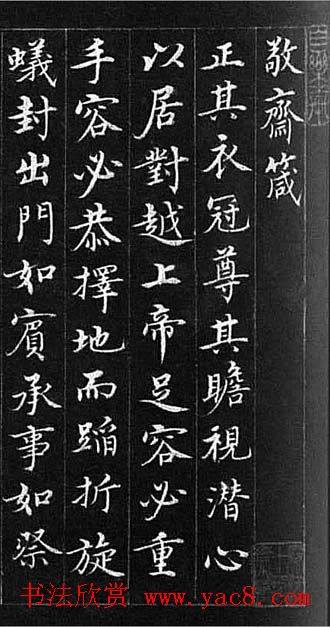 敬齋箴
正其衣冠尊其瞻視潜心
以居對越上帝足容必重
手容必恭擇地而蹈折旋
蟻封出門如賓承事如祭
书法欣赏 www.yac8.com